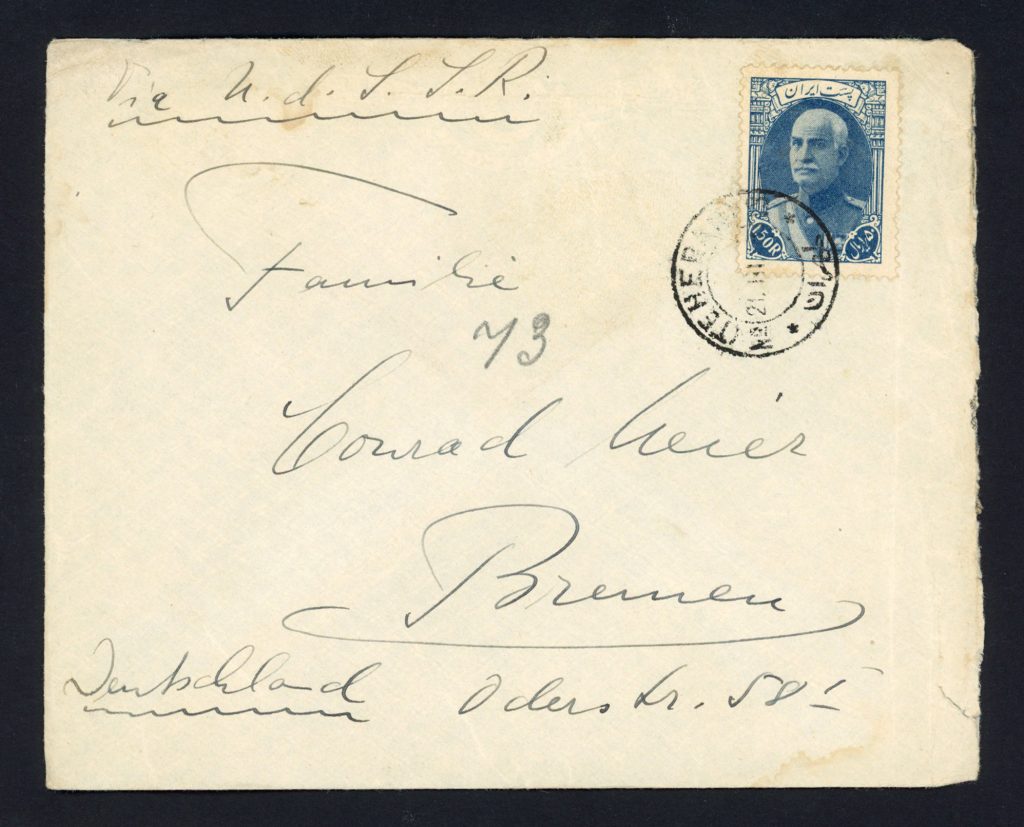 Via U.d.S.S.R.
پست ایران
1.50R
ریال
TEHERAN
21 III
Familie
73
Conrad Meier
Bremen
Deutschland Oderstr. 58 I